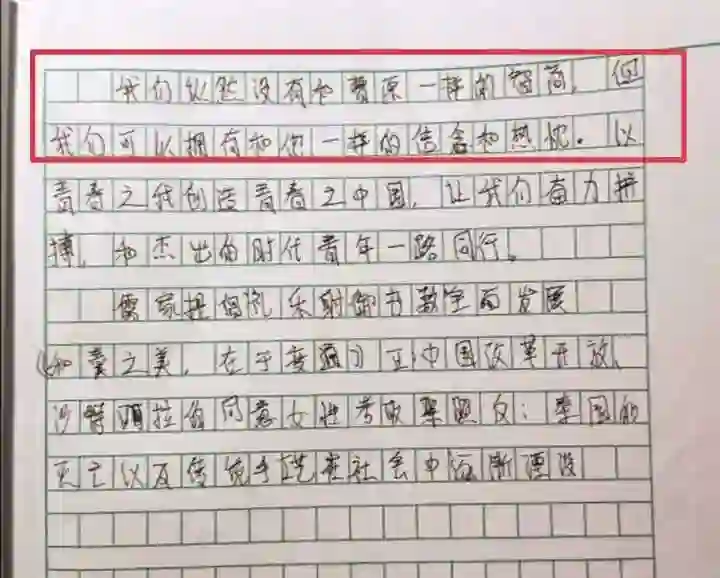 我们纵然没有和曹原一样的智商,但
我们可以拥有和他一样的信念和热忱。以
青春之我创造青春之中国,让我们奋力拼
搏,和杰出的时代青年一路同行。
儒家提倡礼乐射御书数全面发展
和羹之美,在于 中国改革开放、
沙特阿拉伯同意女性考取驾照 国的
灭亡以及传统手艺在社会中逐渐湮没